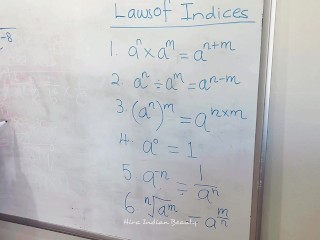 -8
Laws of Indices
1. aⁿ × aᵐ = aⁿ⁺ᵐ
2. aⁿ ÷ aᵐ = aⁿ⁻ᵐ
3. (aⁿ)ᵐ = aⁿˣᵐ
4. a⁰ = 1
5. a⁻ⁿ = 1/aⁿ
6. ⁿ√aᵐ = a^(m/n)
Hira Indian Beauty